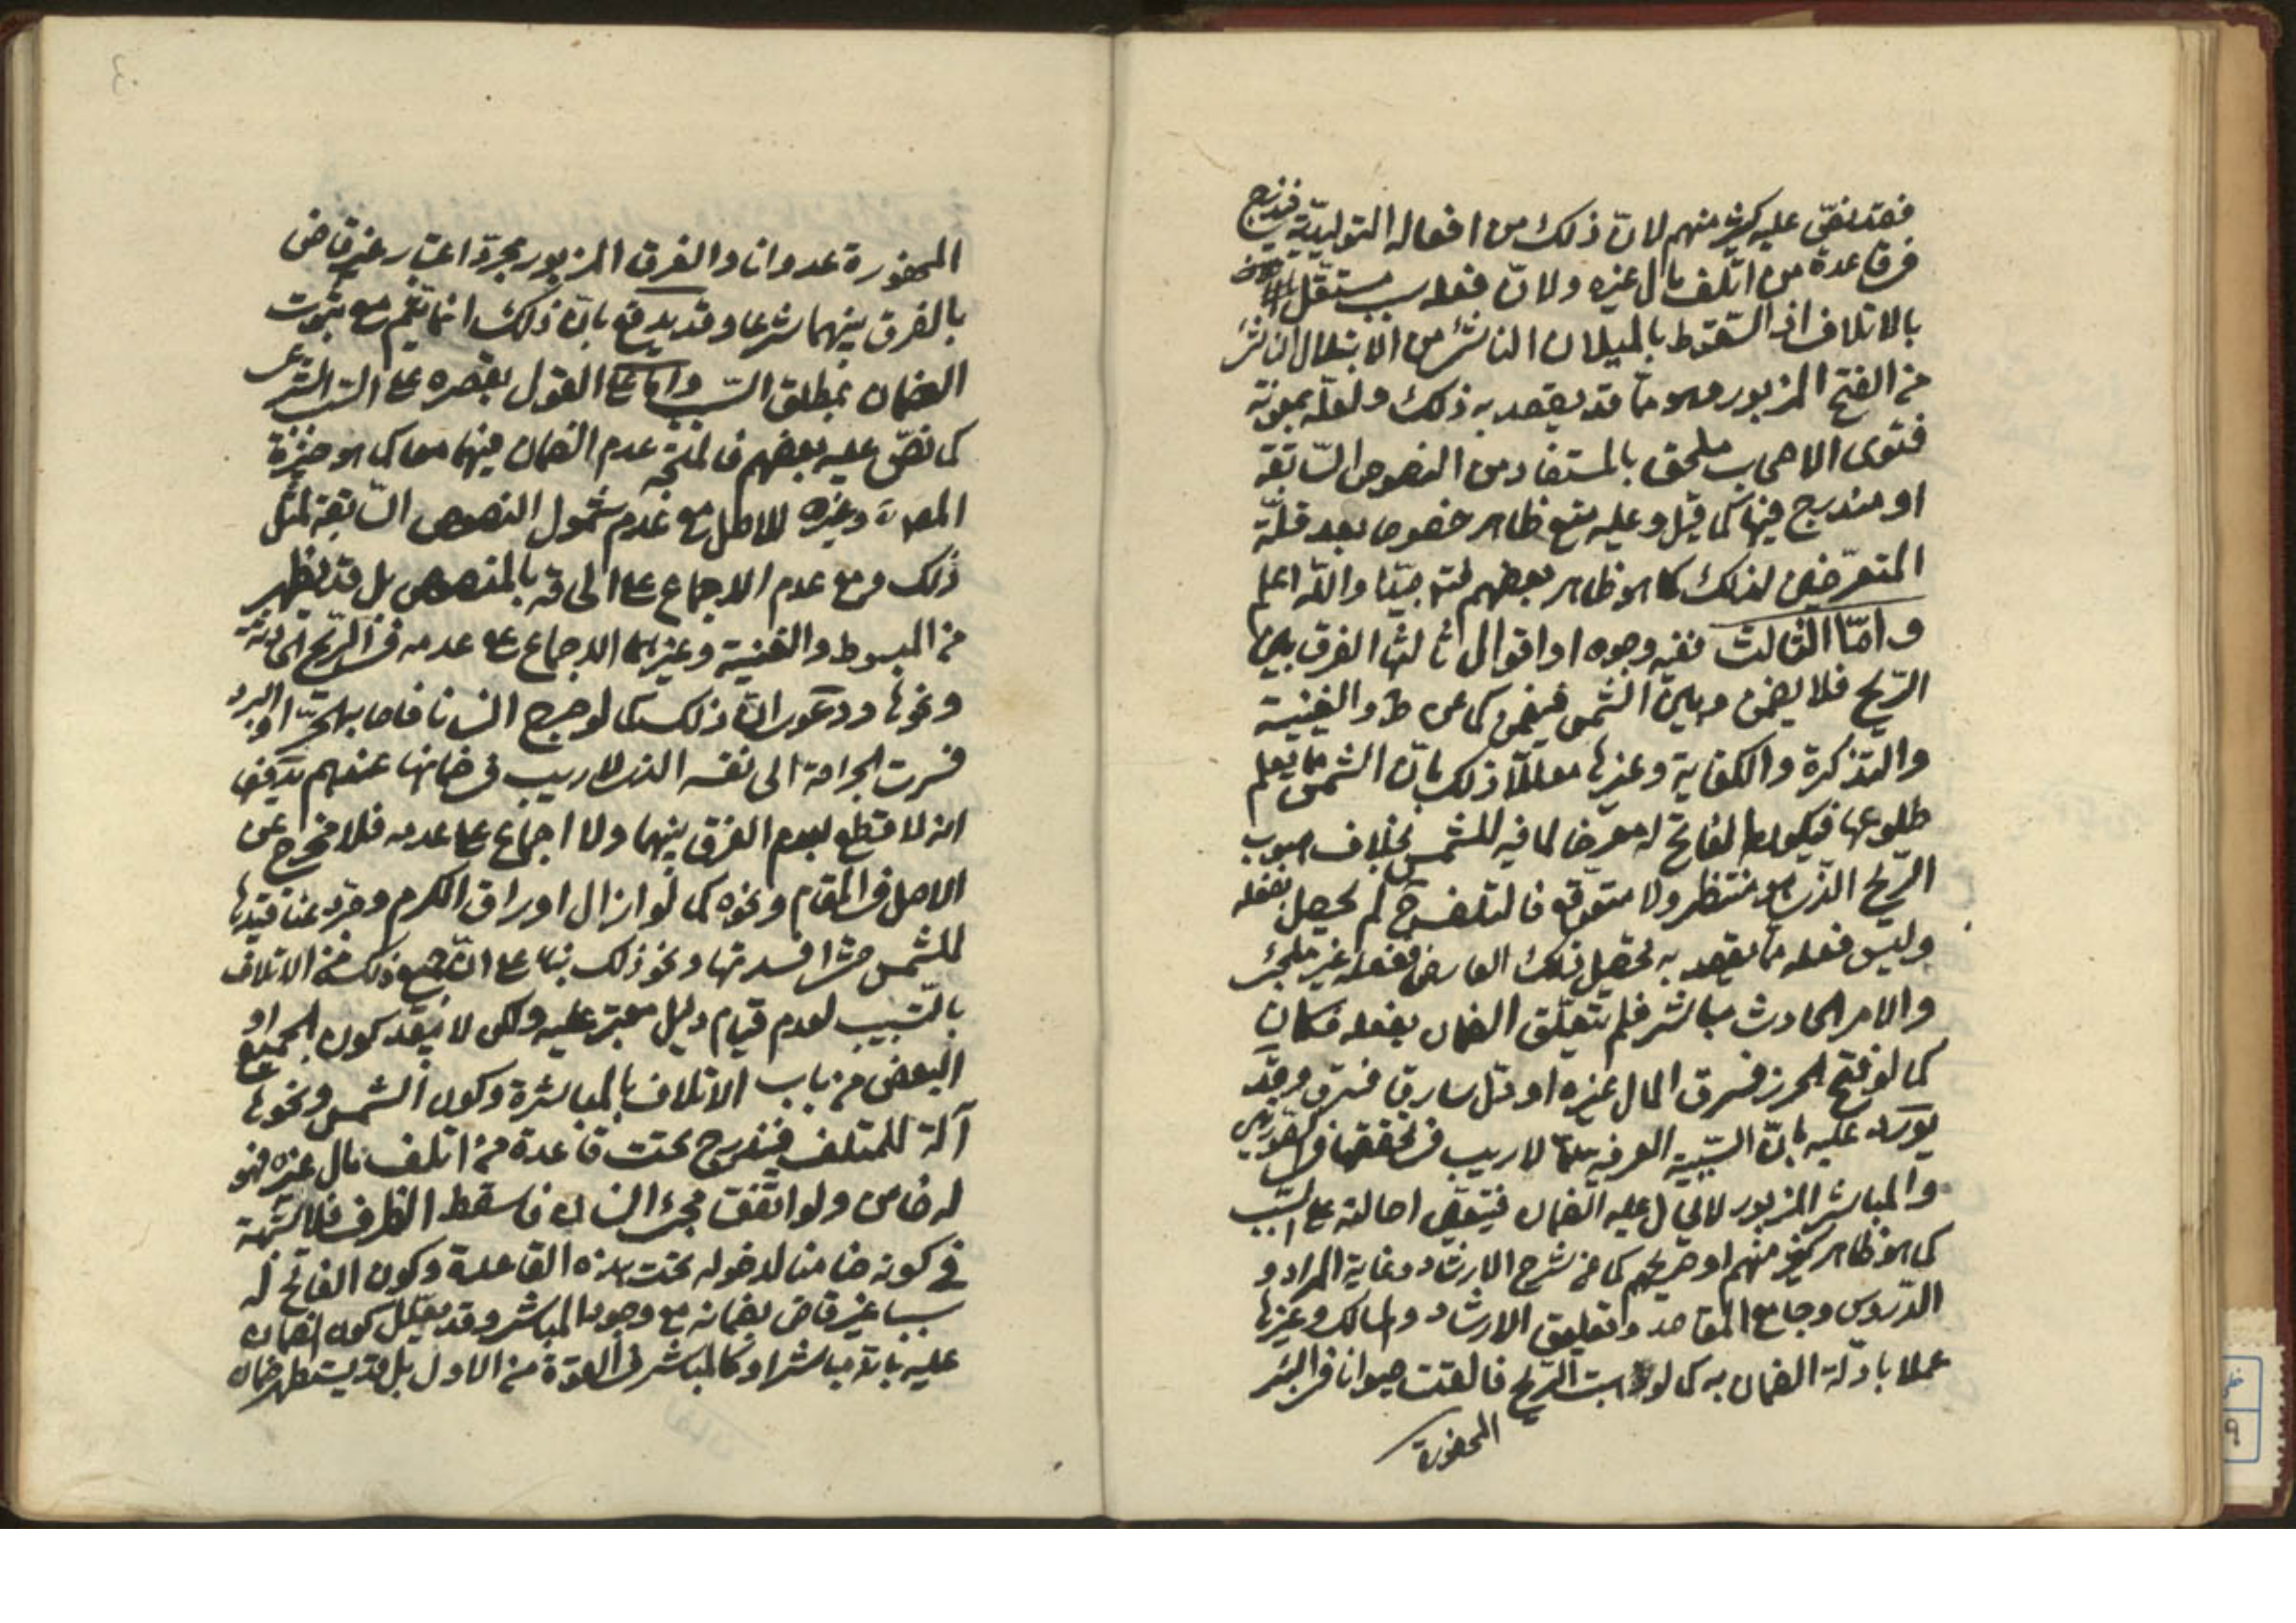 فقد نصّ عليه كثير منهم لانّ ذلك من افعاله التوليديّة فيندرج
في قاعدة من اتلف مال غيره ولانّ فعله سبب مستقلّ
بالاتلاف اذ السّقوط بالميلان الناشئ من الابتلال الناشئ
من الفتح المزبور وهو ممّا قد يقصد به ذلك ولعلّه بمعونة
فتوى الاصحاب ملحق بالمستفاد من النصوص السّابقة
او مندرج فيها كما قيل وعليه منع ظاهر خصوصا بعد قلّة
المتعرّضين لذلك كما هو ظاهر بعضهم فتد جيّدا والله اعلم
وامّا الثالث ففيه وجوه او اقوال ثالثها الفرق بين
الرّيح فلا يضمن وبين الشّمس فيضمن كما عن ط والغنية
والتذكرة والكفاية وغيرها معللّا ذلك بانّ الشمس ممّا يعلم
طلوعها فيكون الفاتح له معرضا لما فيه للشمس بخلاف هبوب
الرّيح الذي هو منتظر ولا متوقّع فالتلف ح لم يحصل بفعله
وليس فعله ممّا يقصد به تحصيل ذلك العارض ففعله غير ملجئ
والامر الحادث مباشر فلم يتعلّق الضمان بفعله فكان
كما لو فتح الحرز فسرق المال غيره او دلّ سارقا فسرق وقد
يورد عليه بانّ السّببيّة العرفيّة ممّا لا ريب في تحققها في الصّورتين
والمباشر المزبور لا يحال عليه الضمان فيتعيّن احالته على السّبب
كما هو ظاهر كثير منهم او صريحهم كما عن شرح الارشاد وغاية المراد و
الدّروس وجامع المقاصد وتعليق الارشاد والمسالك وغيرها
عملا بادلّة الضمان به كما لو هبت الرّيح فالقت حيوانا في البئر
المحفورة
المحفورة عدوانا والفرق المزبور مجرّد اعتبار غير قاض
بالفرق بينهما شرعا وقد يدفع بانّ ذلك انما يتم مع ثبوت
الضمان بمطلق السّبب وامّا على القول بقصره على السّبب الشرعي
كما نصّ عليه بعضهم فالمتّجه عدم الضمان فيهما معا كما هو خيرة
المص ره وغيره للاصل مع عدم شمول النصوص السّابقة لمثل
ذلك ومع عدم الاجماع على الحاقه بالمنصوص بل قد يظهر
من المبسوط والغنية وغيرهما الاجماع على عدمه في الرّيح الحادثة
ونحوها ودعوى انّ ذلك كما لو جرح انسانا فاصابه الحرّ او البرد
فسرت الجراحة الى نفسه الذي لا ريب في ضمانها عندهم يدفعها
انه لا قطع بعدم الفرق بينهما ولا اجماع على عدمه فلا مخرج عن
الاصل في المقام ونحوه كما لو ازال اوراق الكرم وجرد عناقيدها
للشمس حتى افسدتها ونحو ذلك بناء على انّ جميع ذلك من الاتلاف
بالتّسبيب لعدم قيام دليل معتبر عليه ولكن لا يبعد كون الجميع او
البعض من باب الاتلاف بالمباشرة وكون الشمس ونحوها
آلة للمتلف فيندرج تحت قاعدة من اتلف مال غيره فهو
له ضامن ولو اتّفق مجئ انسان فاسقط الظرف فلا شبهة
في كونه ضامنا لدخوله تحت هذه القاعدة وكون الفاتح له
سببا غير قاض بضمانه مع وجود المباشر وقد يعلّل كون الضمان
عليه بانّه مباشر او كالمباشر في القوة من الاول بل قد يستظهر ضمان